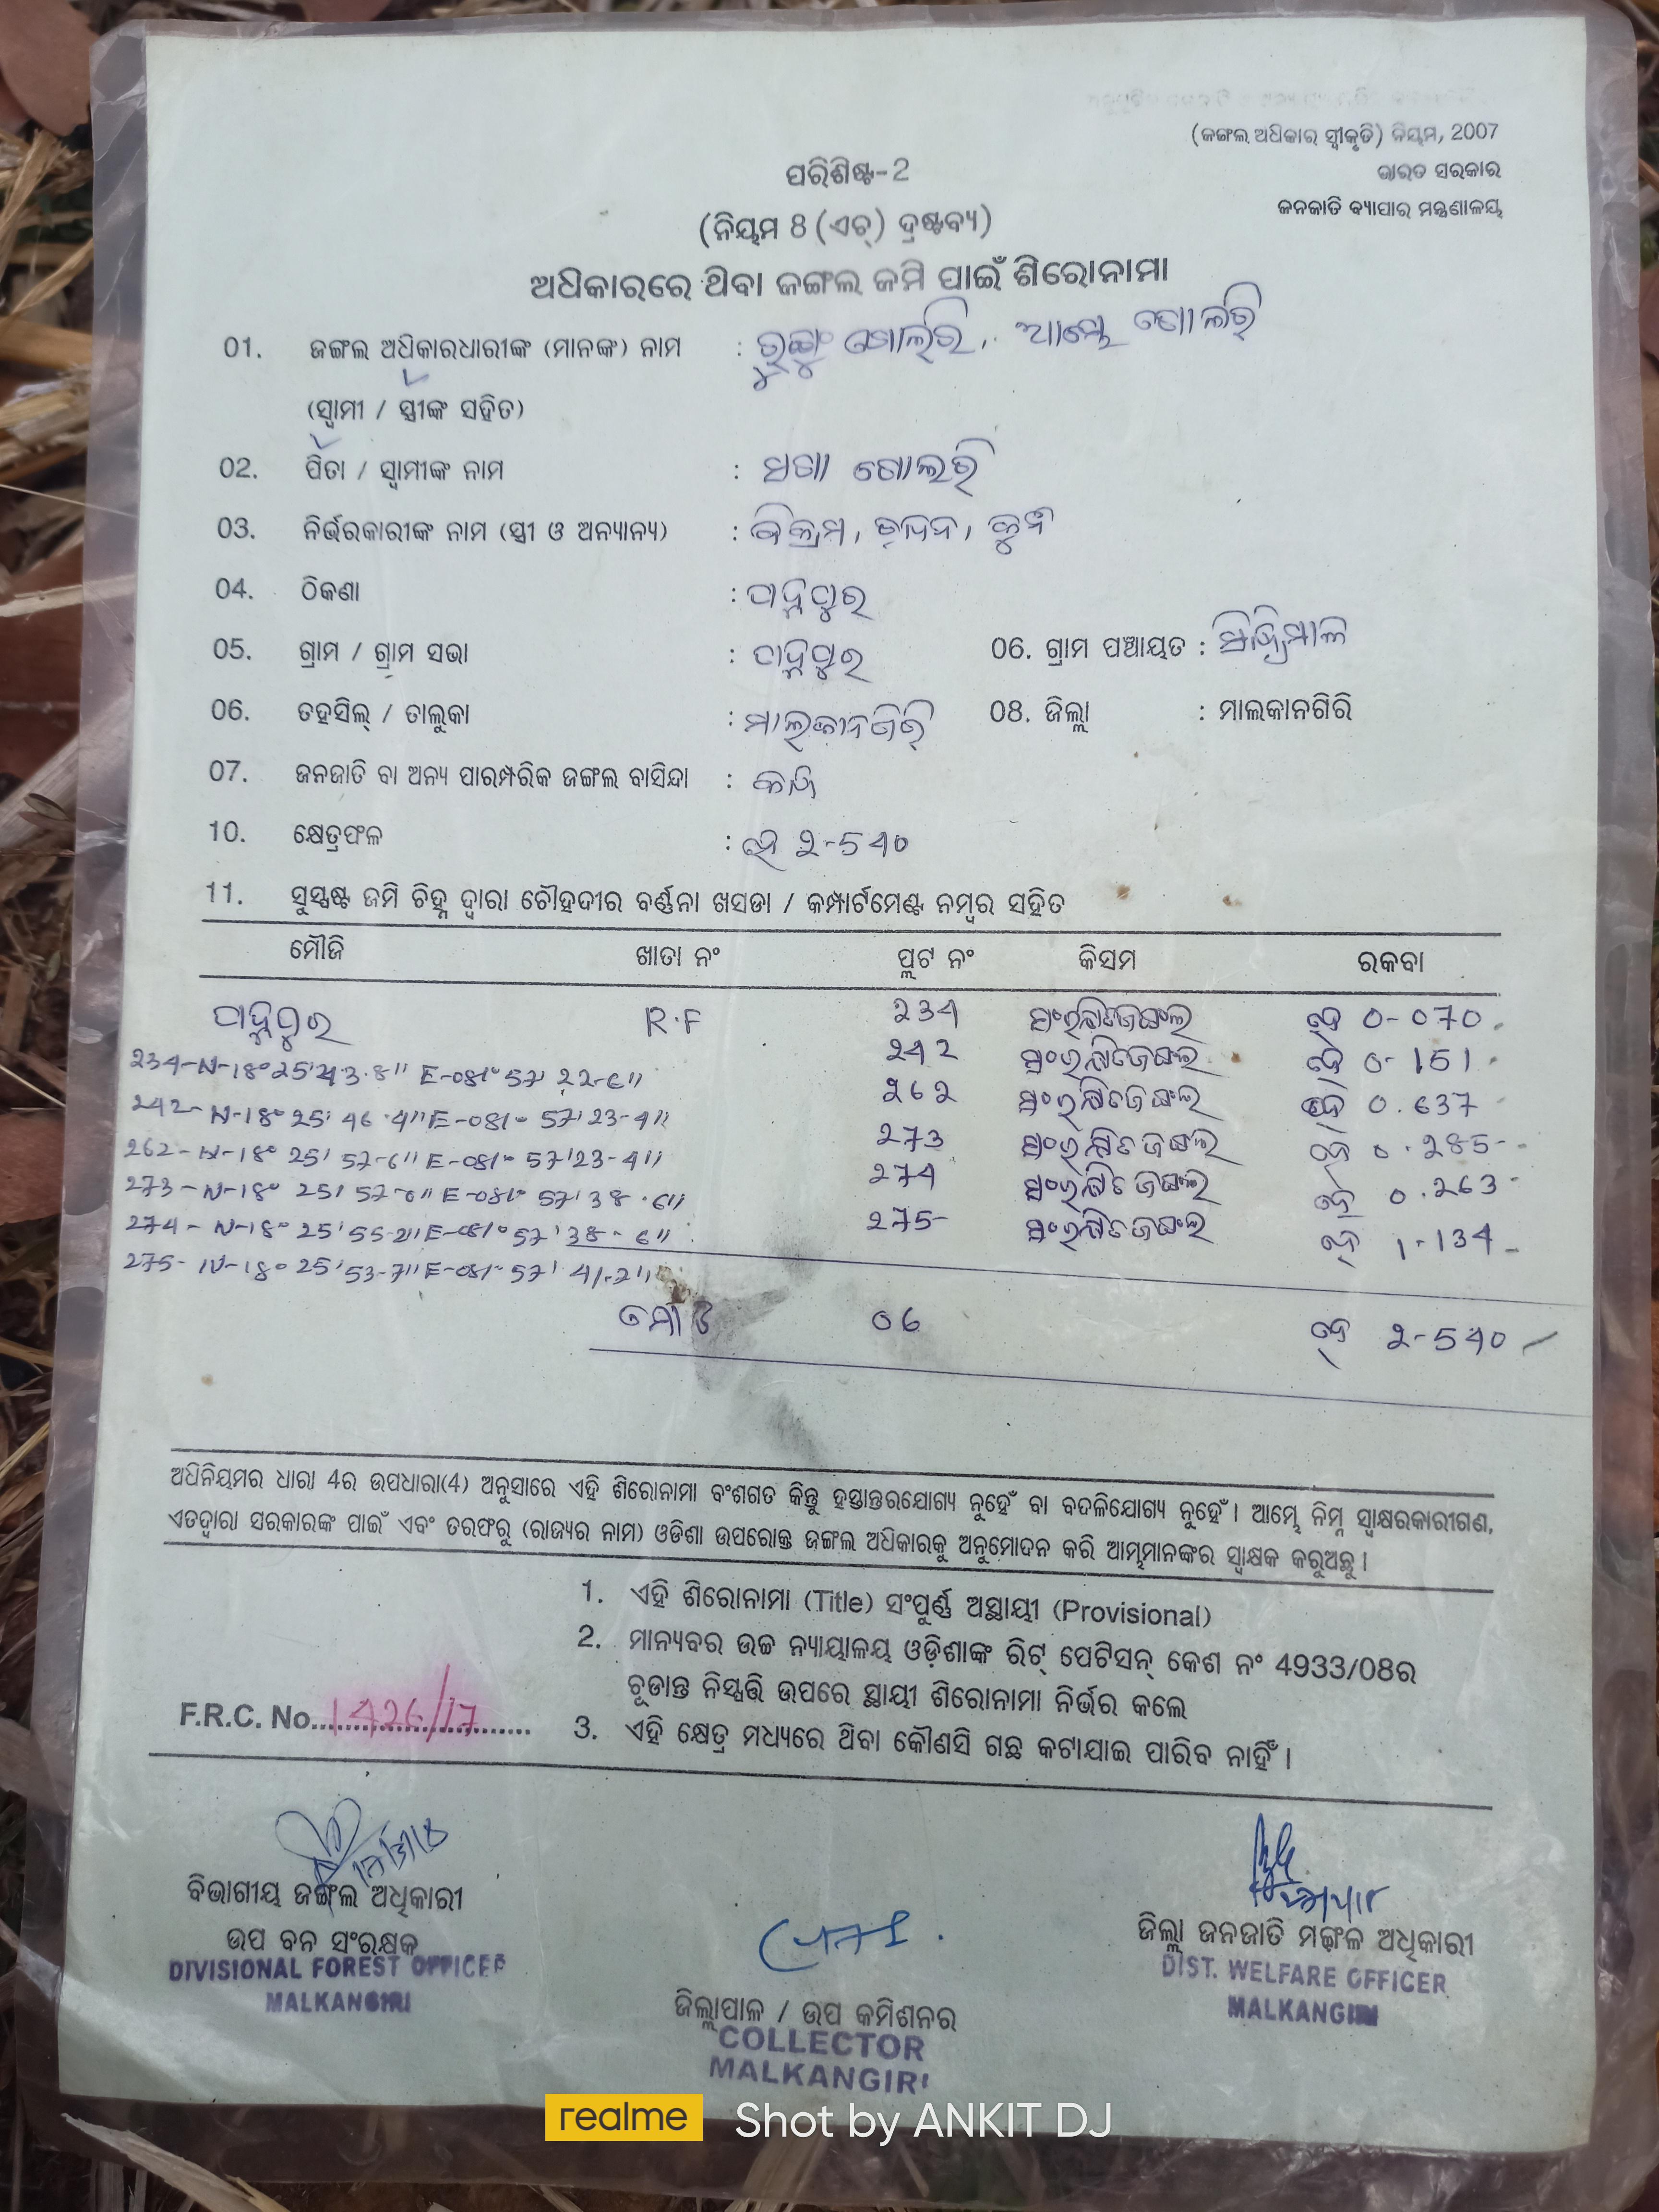 (ଜଙ୍ଗଲ ଅଧିକାର ସ୍ୱୀକୃତି) ନିୟମ, 2007
ଭାରତ ସରକାର
ଜନଜାତି ବ୍ୟାପାର ମନ୍ତ୍ରଣାଳୟ
ପରିଶିଷ୍ଟ-2
(ନିୟମ ୫ (ଏଚ୍) ଦ୍ରଷ୍ଟବ୍ୟ)
ଅଧିକାରରେ ଥିବା ଜଙ୍ଗଲ ଜମି ପାଇଁ ଶିରୋନାମା
01. ଜଙ୍ଗଲ ଅଧିକାରଧାରୀଙ୍କ (ମାନଙ୍କ) ନାମ :
(ସ୍ୱାମୀ / ସ୍ତ୍ରୀଙ୍କ ସହିତ)
02. ପିତା / ସ୍ୱାମୀଙ୍କ ନାମ :
03. ନିର୍ଭରକାରୀଙ୍କ ନାମ (ସ୍ତ୍ରୀ ଓ ଅନ୍ୟାନ୍ୟ) : ବିକ୍ରମ,
04. ଠିକଣା :
05. ଗ୍ରାମ / ଗ୍ରାମ ସଭା : 06. ଗ୍ରାମ ପଞ୍ଚାୟତ :
06. ତହସିଲ୍ / ତାଲୁକା : ମାଲକାନଗିରି 08. ଜିଲ୍ଲା : ମାଲକାନଗିରି
07. ଜନଜାତି ବା ଅନ୍ୟ ପାରମ୍ପରିକ ଜଙ୍ଗଲ ବାସିନ୍ଦା :
10. କ୍ଷେତ୍ରଫଳ : ହେ 2-540
11. ସୁସ୍ପଷ୍ଟ ଜମି ଚିହ୍ନ ଦ୍ୱାରା ଚୌହଦୀର ବର୍ଣ୍ଣନା ଖସଡା / କମ୍ପାର୍ଟମେଣ୍ଟ ନମ୍ବର ସହିତ
ମୌଜି ଖାତା ନଂ ପ୍ଲଟ ନଂ କିସମ ରକବା
R.F 234 ସଂରକ୍ଷିତ ଜଙ୍ଗଲ ହେ 0-070
234-N-18° 25' 43.8" E-081° 57' 22-6" 242 ସଂରକ୍ଷିତ ଜଙ୍ଗଲ ହେ 0-151
242-N-18° 25' 46.4" E-081° 57' 23-4" 262 ସଂରକ୍ଷିତ ଜଙ୍ଗଲ ହେ 0.637
262-N-18° 25' 57-6" E-081° 57' 23-4" 273 ସଂରକ୍ଷିତ ଜଙ୍ଗଲ ହେ 0.285
273-N-18° 25' E-081° 57' 38.6" 274 ସଂରକ୍ଷିତ ଜଙ୍ଗଲ ହେ 0.263
274-N-18° 25' 55-2" E-081° 57' 38-6" 275 ସଂରକ୍ଷିତ ଜଙ୍ଗଲ ହେ 1-134
275-N-18° 25' 53-7" E-081° 57' 41-2"
06 ହେ 2-540
ଅଧିନିୟମର ଧାରା 4ର ଉପଧାରା(4) ଅନୁସାରେ ଏହି ଶିରୋନାମା ବଂଶଗତ କିନ୍ତୁ ହସ୍ତାନ୍ତରଯୋଗ୍ୟ ନୁହେଁ ବା ବଦଳିଯୋଗ୍ୟ ନୁହେଁ । ଆମ୍ଭେ ନିମ୍ନ ସ୍ୱାକ୍ଷରକାରୀଗଣ,
ଏତଦ୍ୱାରା ସରକାରଙ୍କ ପାଇଁ ଏବଂ ତରଫରୁ (ରାଜ୍ୟର ନାମ) ଓଡିଶା ଉପରୋକ୍ତ ଜଙ୍ଗଲ ଅଧିକାରକୁ ଅନୁମୋଦନ କରି ଆମ୍ଭମାନଙ୍କର ସ୍ୱାକ୍ଷକ କରୁଅଛୁ ।
1. ଏହି ଶିରୋନାମା (Title) ସଂପୂର୍ଣ୍ଣ ଅସ୍ଥାୟୀ (Provisional)
2. ମାନ୍ୟବର ଉଚ୍ଚ ନ୍ୟାୟାଳୟ ଓଡ଼ିଶାଙ୍କ ରିଟ୍ ପେଟିସନ୍ କେଶ ନଂ 4933/08ର
ଚୂଡାନ୍ତ ନିସ୍ପତ୍ତି ଉପରେ ସ୍ଥାୟୀ ଶିରୋନାମା ନିର୍ଭର କଲେ
F.R.C. No. 1426/17
3. ଏହି କ୍ଷେତ୍ର ମଧ୍ୟରେ ଥିବା କୌଣସି ଗଛ କଟାଯାଇ ପାରିବ ନାହିଁ ।
ବିଭାଗୀୟ ଜଙ୍ଗଲ ଅଧିକାରୀ
ଉପ ବନ ସଂରକ୍ଷକ
DIVISIONAL FOREST OFFICER
MALKANGIRI
ଜିଲ୍ଲାପାଳ / ଉପ କମିଶନର
COLLECTOR
MALKANGIRI
ଜିଲ୍ଲା ଜନଜାତି ମଙ୍ଗଳ ଅଧିକାରୀ
DIST. WELFARE OFFICER
MALKANGIRI
realme Shot by ANKIT DJ